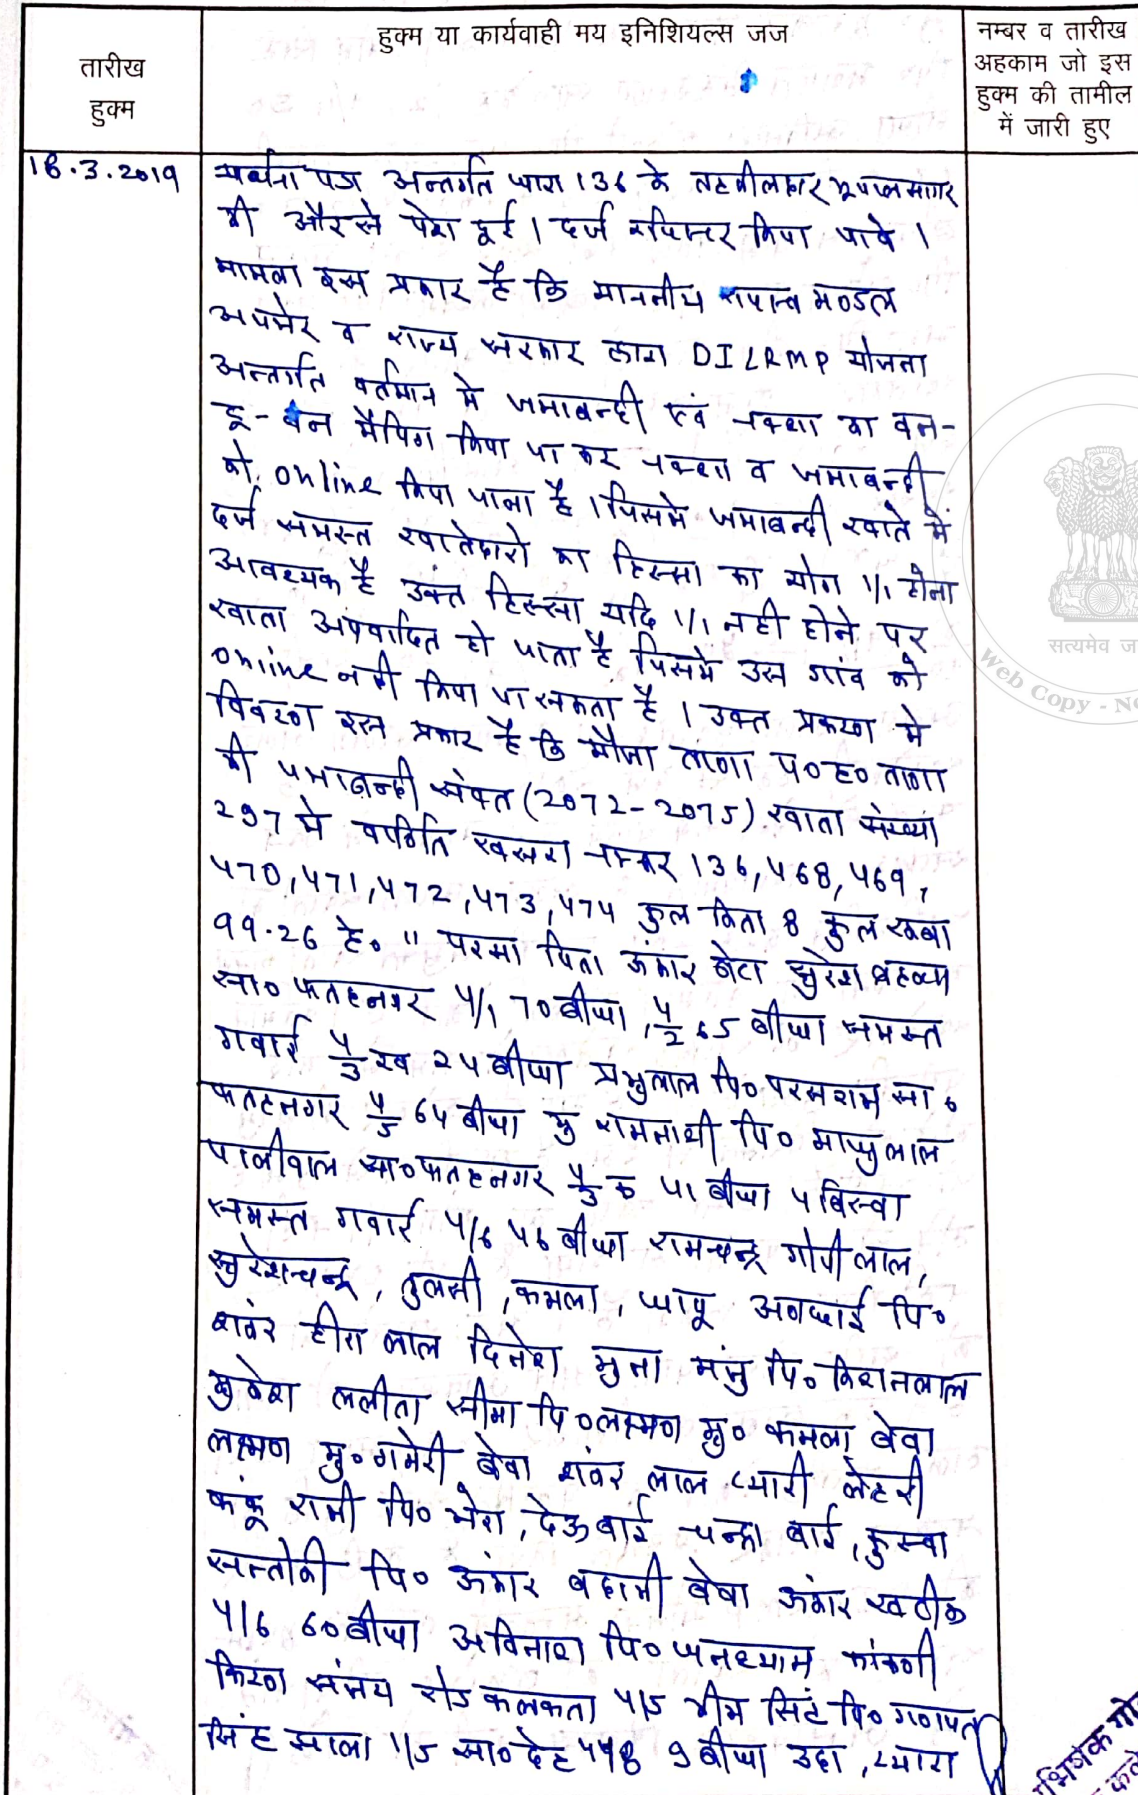 तारीख
हुक्म
हुक्म या कार्यवाही मय इनिशियल्स जज
नम्बर व तारीख
अहकाम जो इस
हुक्म की तामील
में जारी हुए
18.3.2019
प्रार्थना पत्र अन्तर्गत धारा 136 के तहसीलदार भूपालसागर
की और से पेश हुई । दर्ज रजिस्टर किया जावे ।
मामला इस प्रकार है कि माननीय राजस्व मण्डल
अजमेर व राज्य सरकार द्वारा DILRMP योजना
अन्तर्गत वर्तमान मे जमाबन्दी एवं नक्शा का वन-
टू-वन मैपिंग किया जा कर नक्शा व जमाबन्दी
को online किया जाना है । जिसमे जमाबन्दी खाते में
दर्ज समस्त खातेदारो का हिस्सा का योग 1/1 होना
आवश्यक है उक्त हिस्सा यदि 1/1 नही होने पर
खाता अपवादित हो जाता है जिसमे उस गांव को
online नही किया जा सकता है । उक्त प्रकरण मे
विवरण इस प्रकार है कि मौजा ताणा प०ह० ताणा
की जमाबन्दी संवत (2072-2075) खाता संख्या
297 मे वर्णित खसरा नम्बर 136, 468, 469,
470, 471, 472, 473, 474 कुल किता 8 कुल रकबा
99.26 है० " परसा पिता ऊंकार बेटा सुरेश
सा० फतहनगर 4/1 70 बीघा, 4/2 65 बीघा समस्त
गवाई 4/3 ख 24 बीघा प्रभुलाल पि० परसराम सा०
फतहनगर 4/5 64 बीघा मु रामनाथी पि०
पालीवाल सा० फतहनगर 4/3 क 41 बीघा 4 बिस्वा
समस्त गवाई 4/6 46 बीघा रामचन्द्र गोपीलाल,
सुरेशचन्द्र, तुलसी, कमला, धापू पि०
शंकर हीरा लाल दिनेश मुना मंजु पि० किशनलाल
मुकेश ललीता सीमा पि० लक्ष्मण मु० कमला बेवा
लक्ष्मण मु० गमेरी बेवा शंकर लाल प्यारी लेहरी
कंकू रामी पि० , देऊ बाई चन्द्रा बाई,
सन्तोकी पि० ऊंकार बदामी बेवा ऊंकार खटीक
4/6 60 बीघा अविनाश पि० घनश्याम
किरण संजय रोड कलकता 4/5 भीम सिंह पि० गणपत
सिंह झाला 1/5 सा० देह 448 9 बीघा उदा, प्यारा
सत्यमेव ज
Web Copy - No